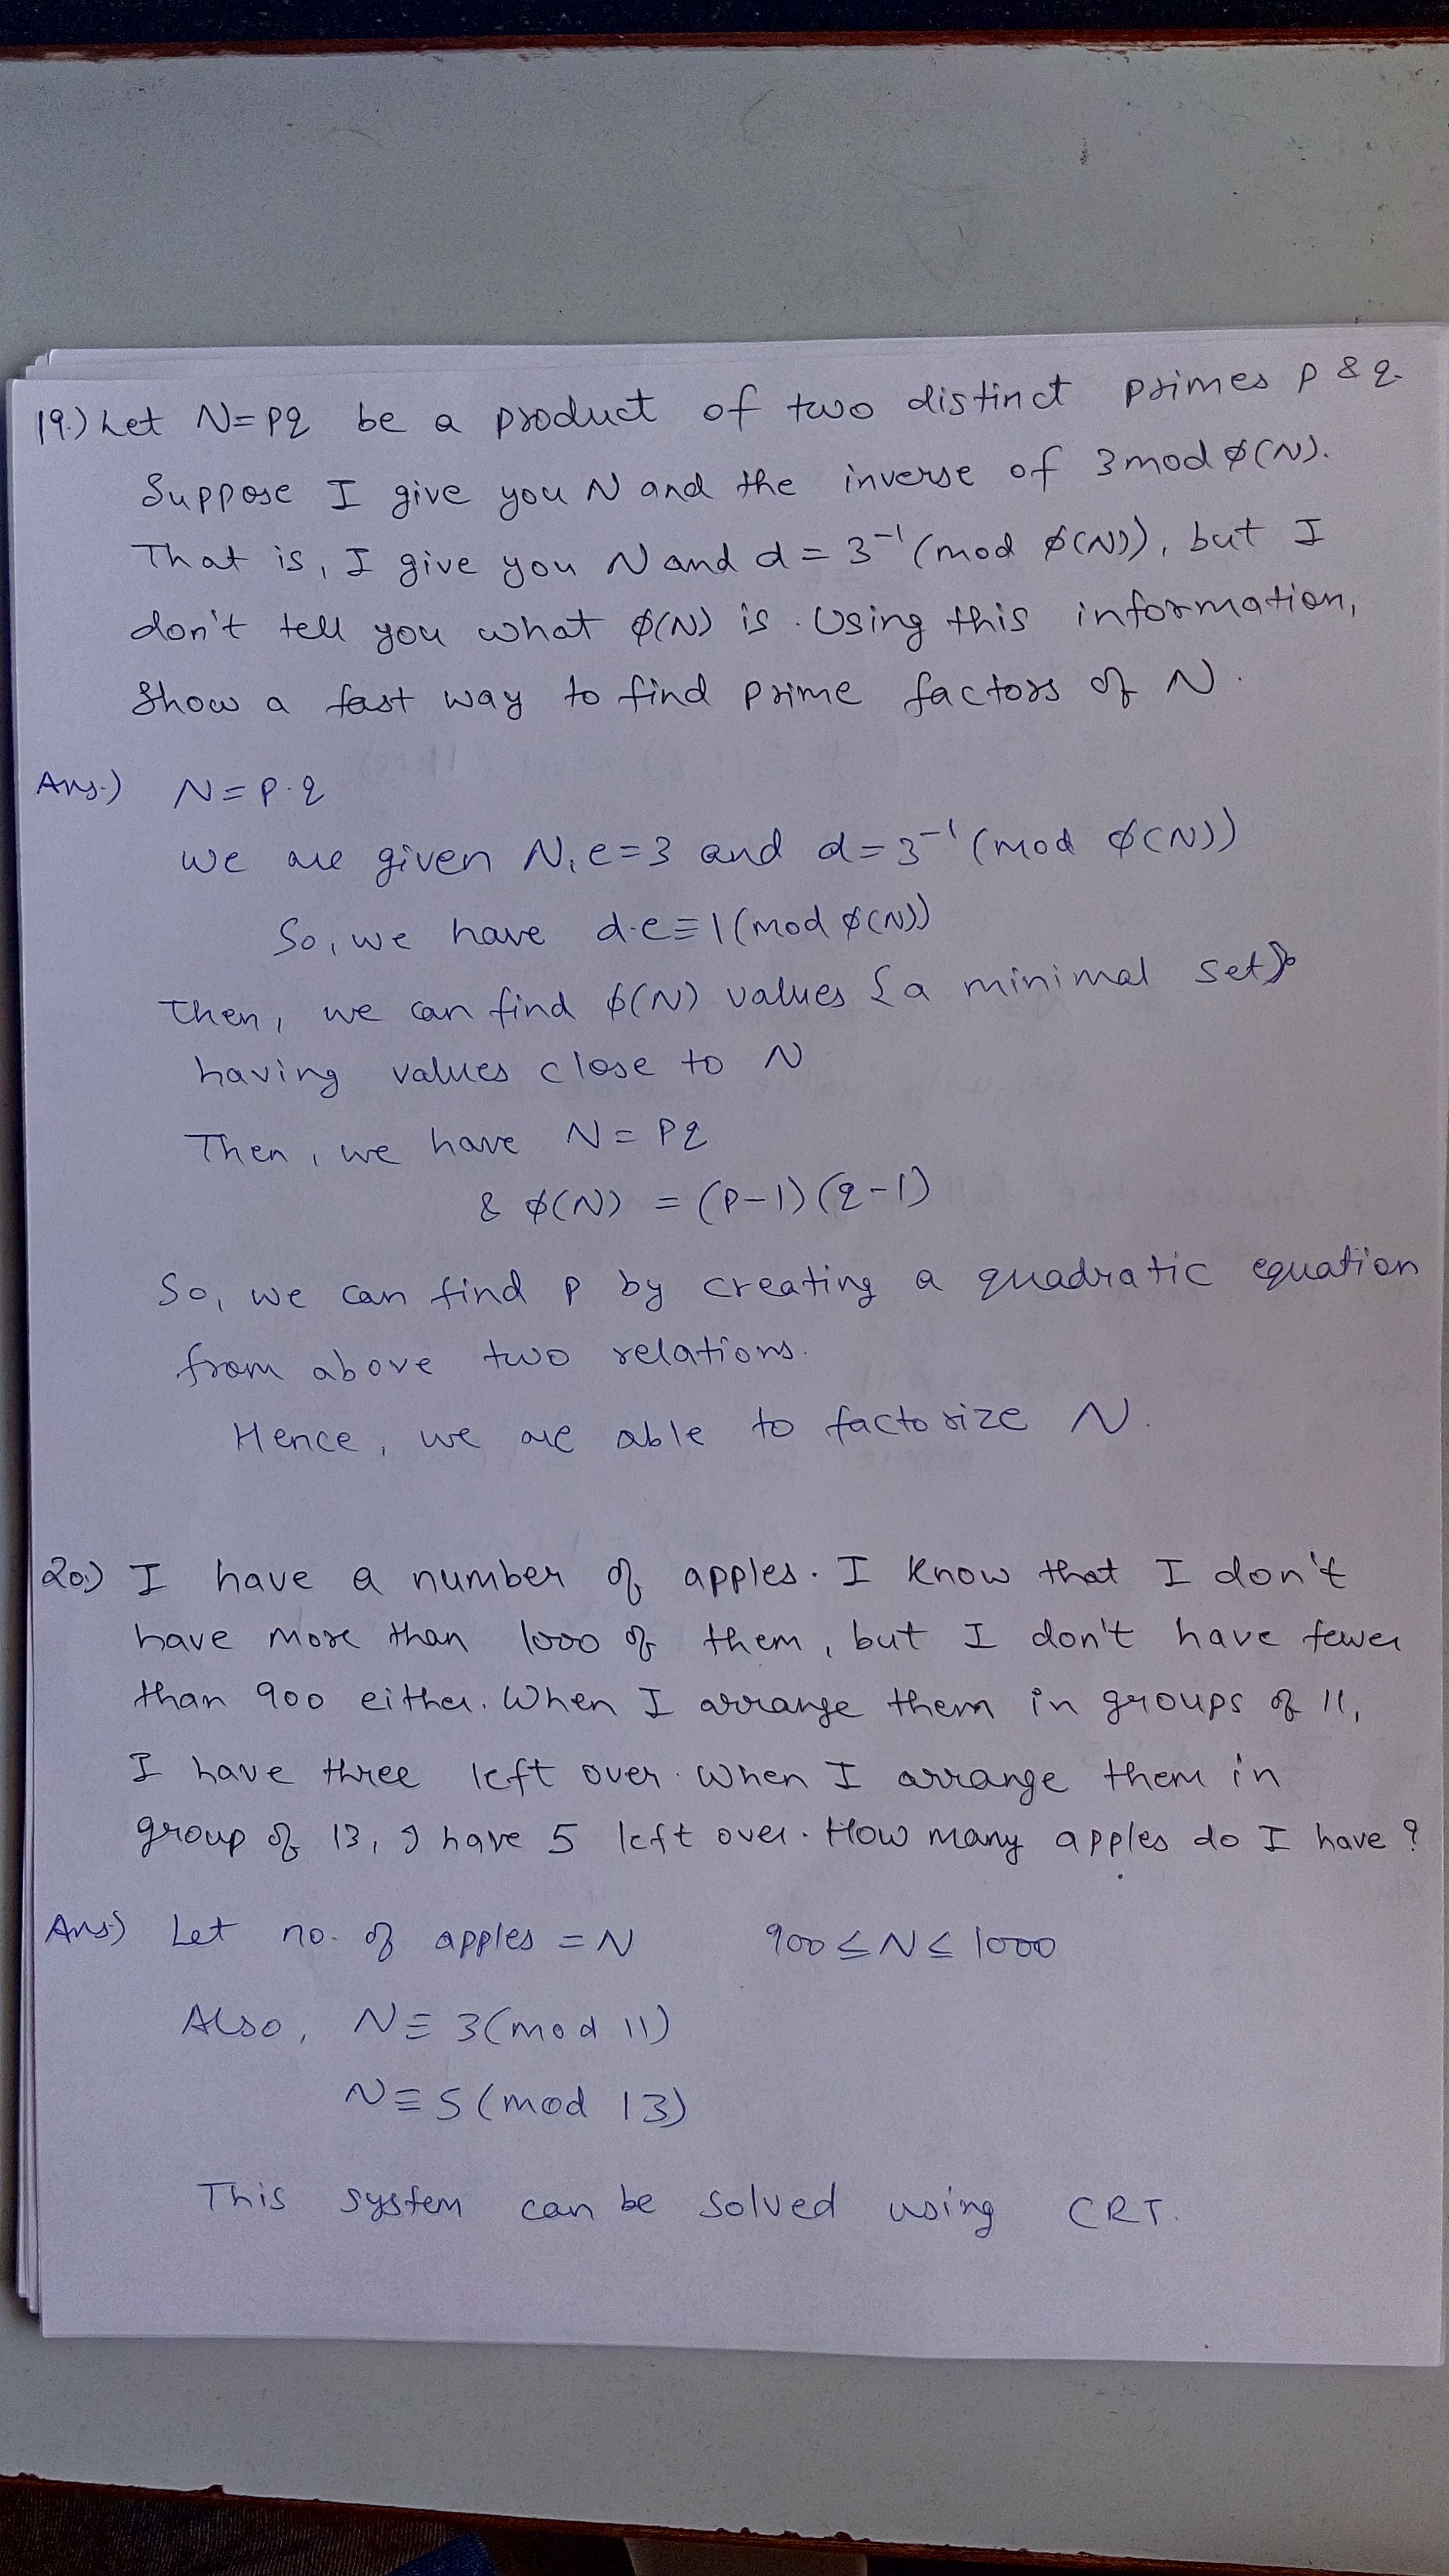 19.) Let N=pq be a product of two distinct primes p & q.
Suppose I give you N and the inverse of 3 mod ϕ(N).
That is, I give you N and d = 3⁻¹ (mod ϕ(N)), but I
don't tell you what ϕ(N) is. Using this information,
Show a fast way to find prime factors of N.
Ans.) N = p·q
we are given N, e=3 and d = 3⁻¹ (mod ϕ(N))
So, we have d·e ≡ 1 (mod ϕ(N))
Then, we can find ϕ(N) values {a minimal set}
having values close to N
Then, we have N = pq
& ϕ(N) = (p-1)(q-1)
So, we can find p by creating a quadratic equation
from above two relations.
Hence, we are able to factorize N.
20.) I have a number of apples. I know that I don't
have more than 1000 of them, but I don't have fewer
than 900 either. When I arrange them in groups of 11,
I have three left over. When I arrange them in
group of 13, I have 5 left over. How many apples do I have?
Ans.) Let no. of apples = N 900 ≤ N ≤ 1000
Also, N ≡ 3 (mod 11)
N ≡ 5 (mod 13)
This system can be solved using CRT.